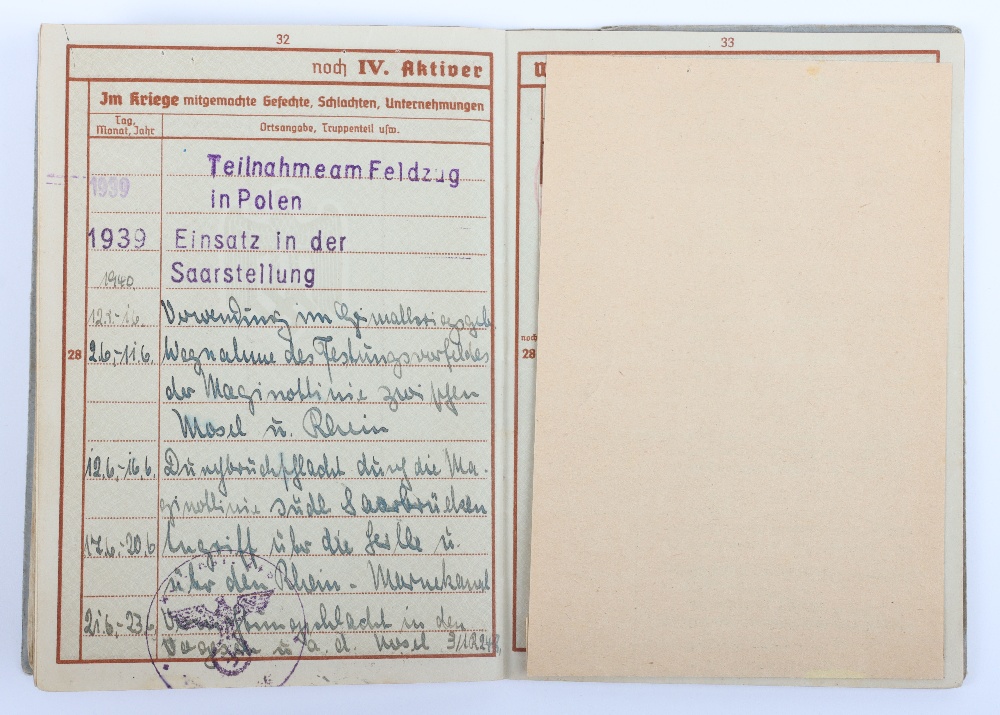 32
noch IV. Aktiver
Im Kriege mitgemachte Gefechte, Schlachten, Unternehmungen
Tag, Monat, Jahr
Ortsangabe, Truppenteil usw.
1939
Teilnahme am Feldzug
in Polen
1939 Einsatz in der
1940 Saarstellung
Verwendung im
28 2.6.-11.6. Wegnahme des Festungsvorfeldes
der Maginotlinie zwischen
Mosel u. Rhein
12.6.-16.6. Durchbruchschlacht durch die Ma-
ginotlinie südl Saarbrücken
17.6.-20.6 Angriff über die Seille u.
über den Rhein-Marnekanal
21.6.-23.6 Vernichtungsschlacht in den
Vogesen u a. d. Mosel
33
noch
28